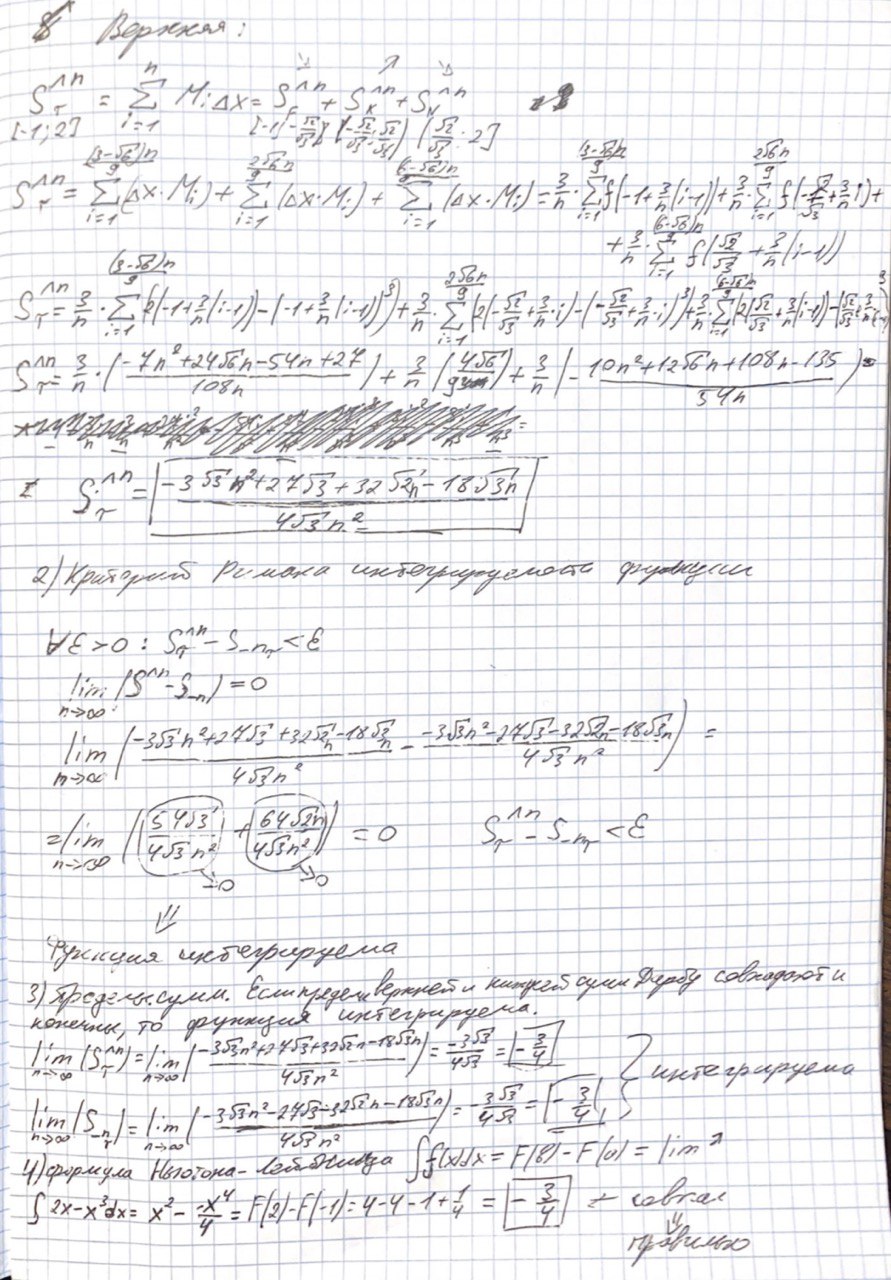 Верхняя:
S_τ^{∧n} = ∑_{i=1}^{n} M_i Δx = S_↘^{∧n} + S_↗^{∧n} + S_↘^{∧n}
[-1; 2] [-1; -√2/√3] (-√2/√3; √2/√3) (√2/√3; 2]
S_τ^{∧n} = ∑_{i=1}^{(3-√6)n/9} (Δx·M_i) + ∑_{i=1}^{2√6n/9} (Δx·M_i) + ∑_{i=1}^{(6-√6)n/9} (Δx·M_i) = 3/n · ∑_{i=1}^{(3-√6)n/9} f(-1+3/n(i-1)) + 3/n · ∑_{i=1}^{2√6n/9} f(-√2/√3+3/n i) +
+ 3/n · ∑_{i=1}^{(6-√6)n/9} f(√2/√3 + 3/n(i-1))
S_τ^{∧n} = 3/n · ∑_{i=1}^{(3-√6)n/9} (2(-1+3/n(i-1)) - (-1+3/n(i-1))^3) + 3/n · ∑_{i=1}^{2√6n/9} (2(-√2/√3+3/n·i) - (-√2/√3+3/n·i)^3) + 3/n · ∑_{i=1}^{(6-√6)n/9} (2(√2/√3+3/n(i-1)) - (√2/√3+3/n(i-1))^3)
S_τ^{∧n} = 3/n · ((-7n²+24√6n-54n+27)/108n) + 3/n (4√6/9) + 3/n (-(10n²+12√6n+108n-135)/54n) =
S_τ^{∧n} = (-3√3n²+27√3+32√2n-18√3n)/(4√3n²)
2) Критерий Римана интегрируемости функции
∀ε>0 : S_τ^{∧n} - S_{-nτ} < ε
lim_{n→∞} (S^{∧n} - S_{-n}) = 0
lim_{n→∞} ((-3√3n²+27√3+32√2n-18√3n)/(4√3n²) - (-3√3n²-27√3-32√2n-18√3n)/(4√3n²)) =
= lim_{n→∞} ((54√3)/(4√3n²) + (64√2n)/(4√3n²)) = 0 S_τ^{∧n} - S_{-nτ} < ε
→0 →0
⇓
Функция интегрируема
3) Пределы сумм. Если предел верхней и нижней сумм Дарбу совпадают и
конечны, то функция интегрируема.
lim_{n→∞} (S_τ^{∧n}) = lim_{n→∞} ((-3√3n²+27√3+32√2n-18√3n)/(4√3n²)) = -3√3/4√3 = -3/4
интегрируема
lim_{n→∞} (S_{-nτ}) = lim_{n→∞} ((-3√3n²-27√3-32√2n-18√3n)/(4√3n²)) = -3√3/4√3 = -3/4
4) формула Ньютона-Лейбница ∫f(x)dx = F(b) - F(a) = lim
∫ 2x-x³dx = x² - x⁴/4 = F(2)-F(-1) = 4-4-1+1/4 = -3/4 совпал
⇓
правильно